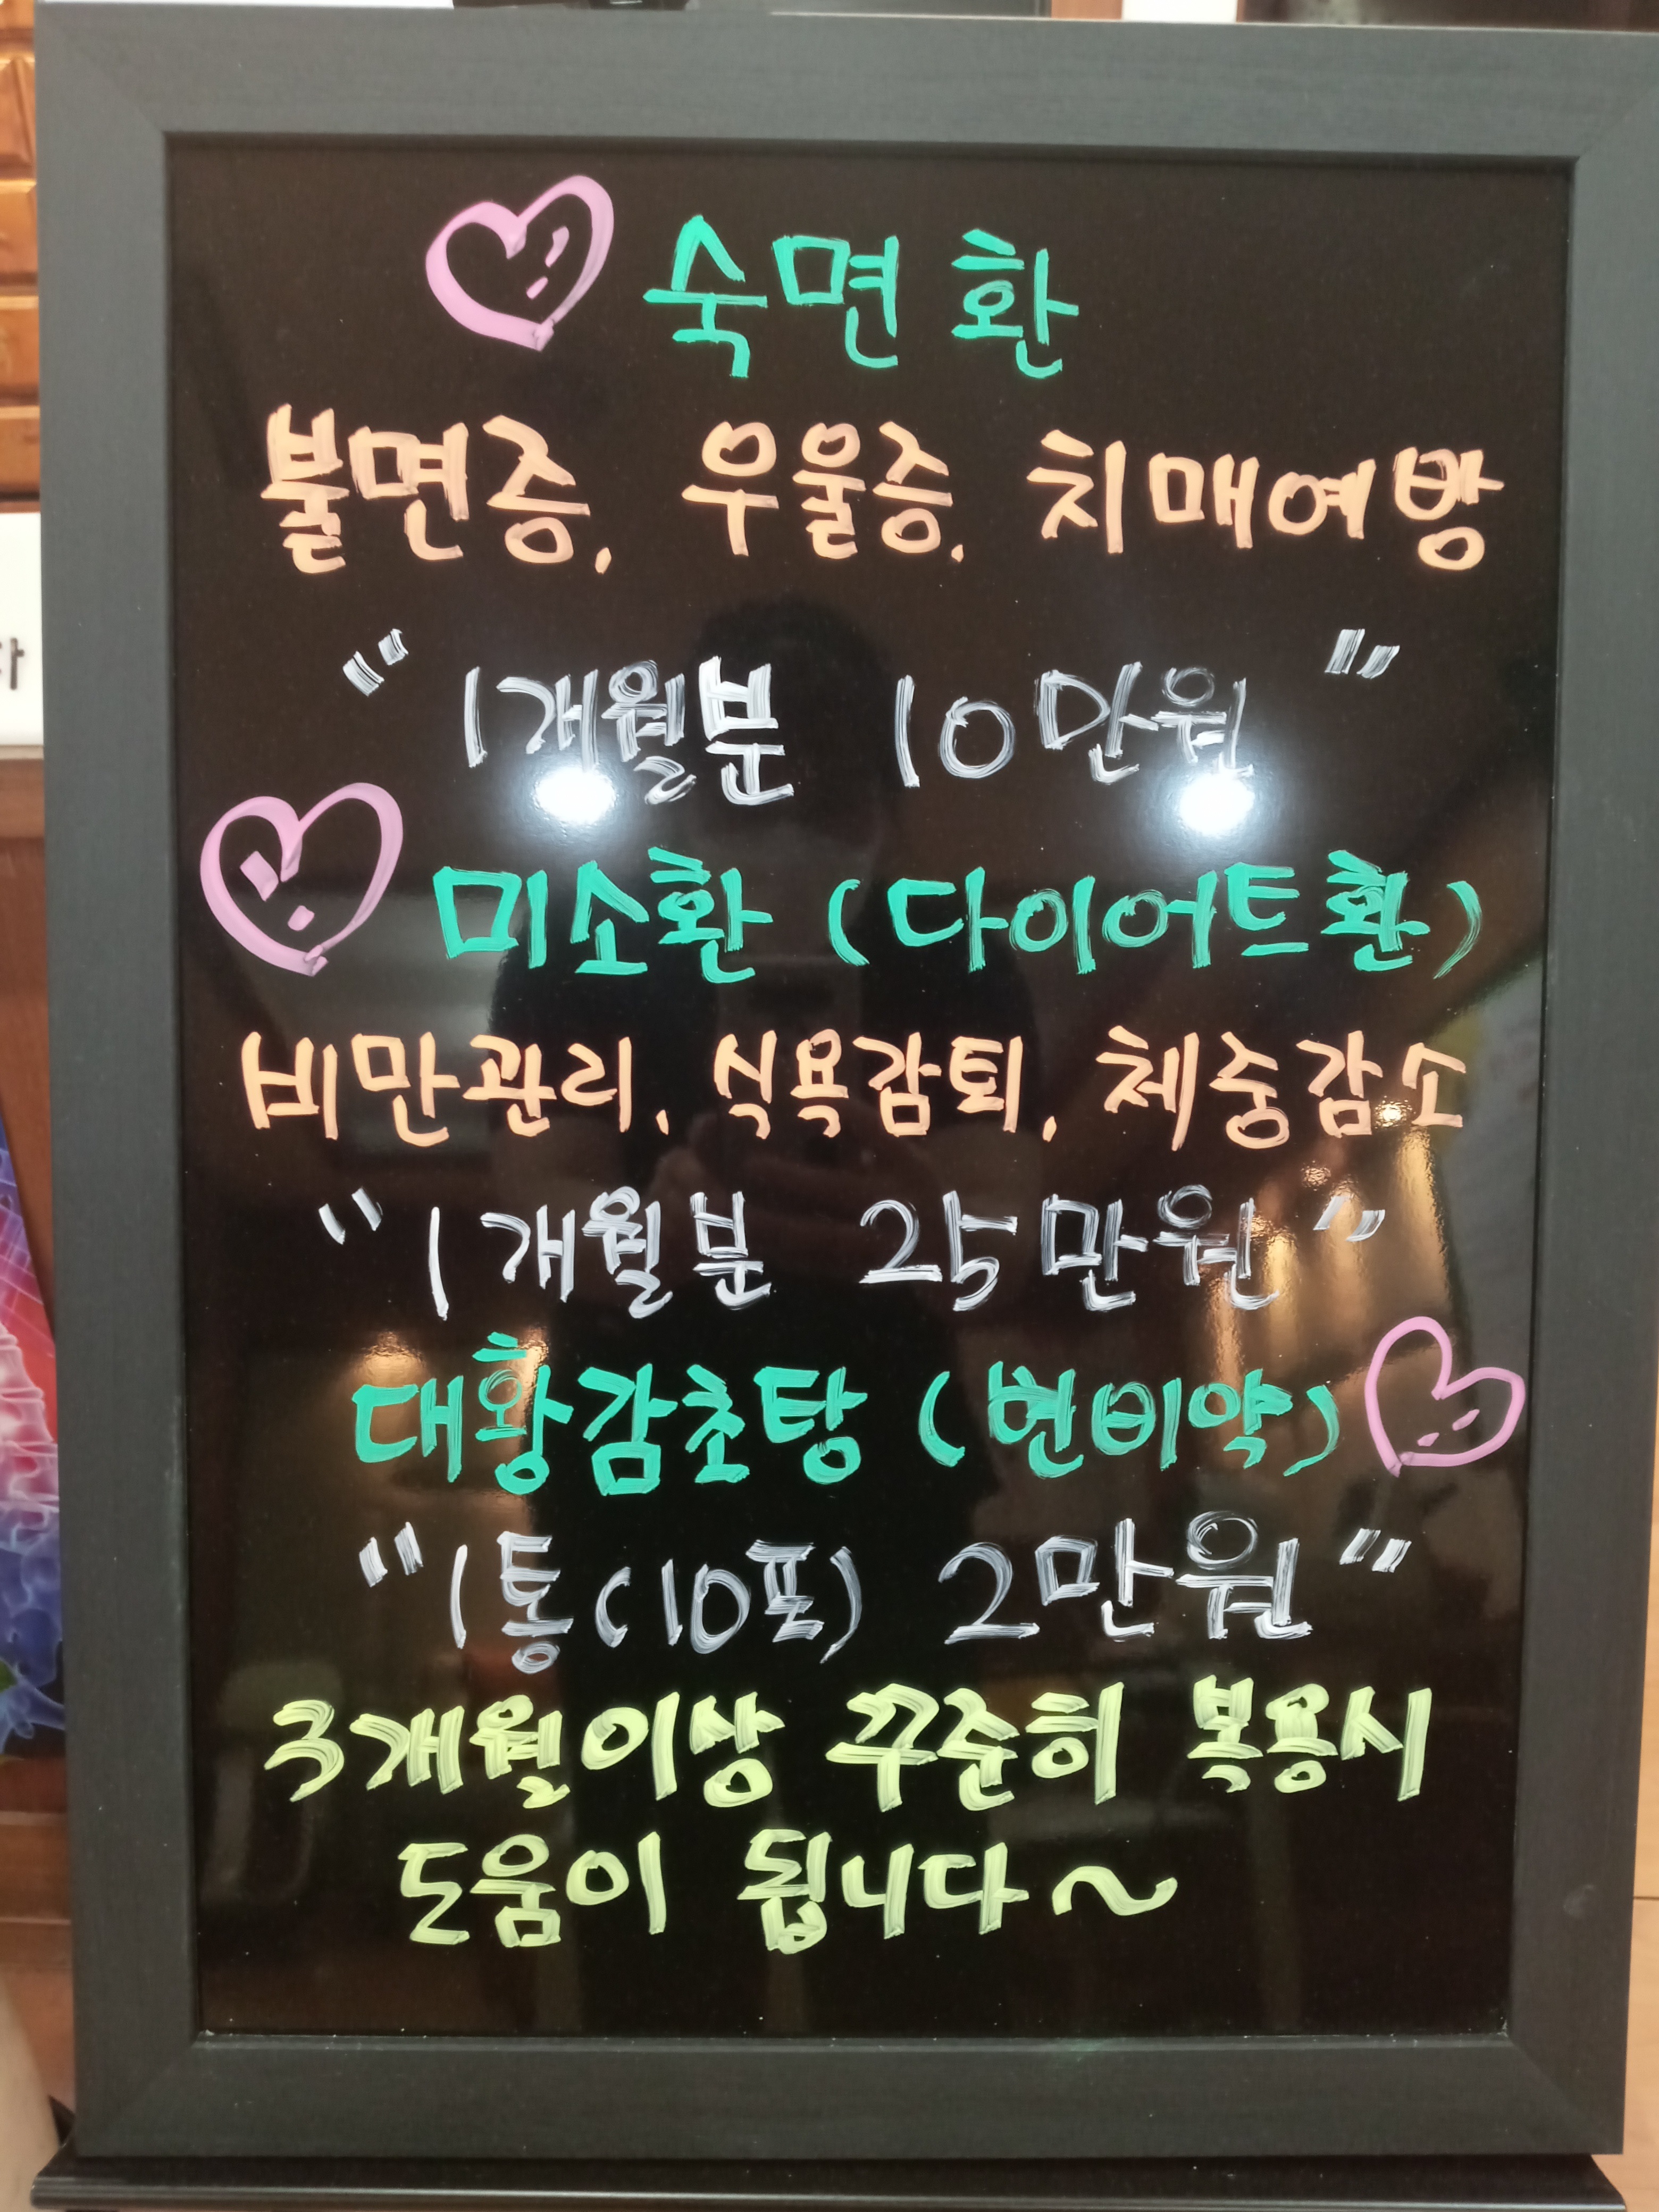 숙면환
불면증, 우울증, 치매예방
"1개월분 10만원"
미소환 (다이어트환)
비만관리, 식욕감퇴, 체중감소
"1개월분 25만원"
대황감초탕 (변비약)
"1통(10포) 2만원"
3개월이상 꾸준히 복용시
도움이 됩니다~